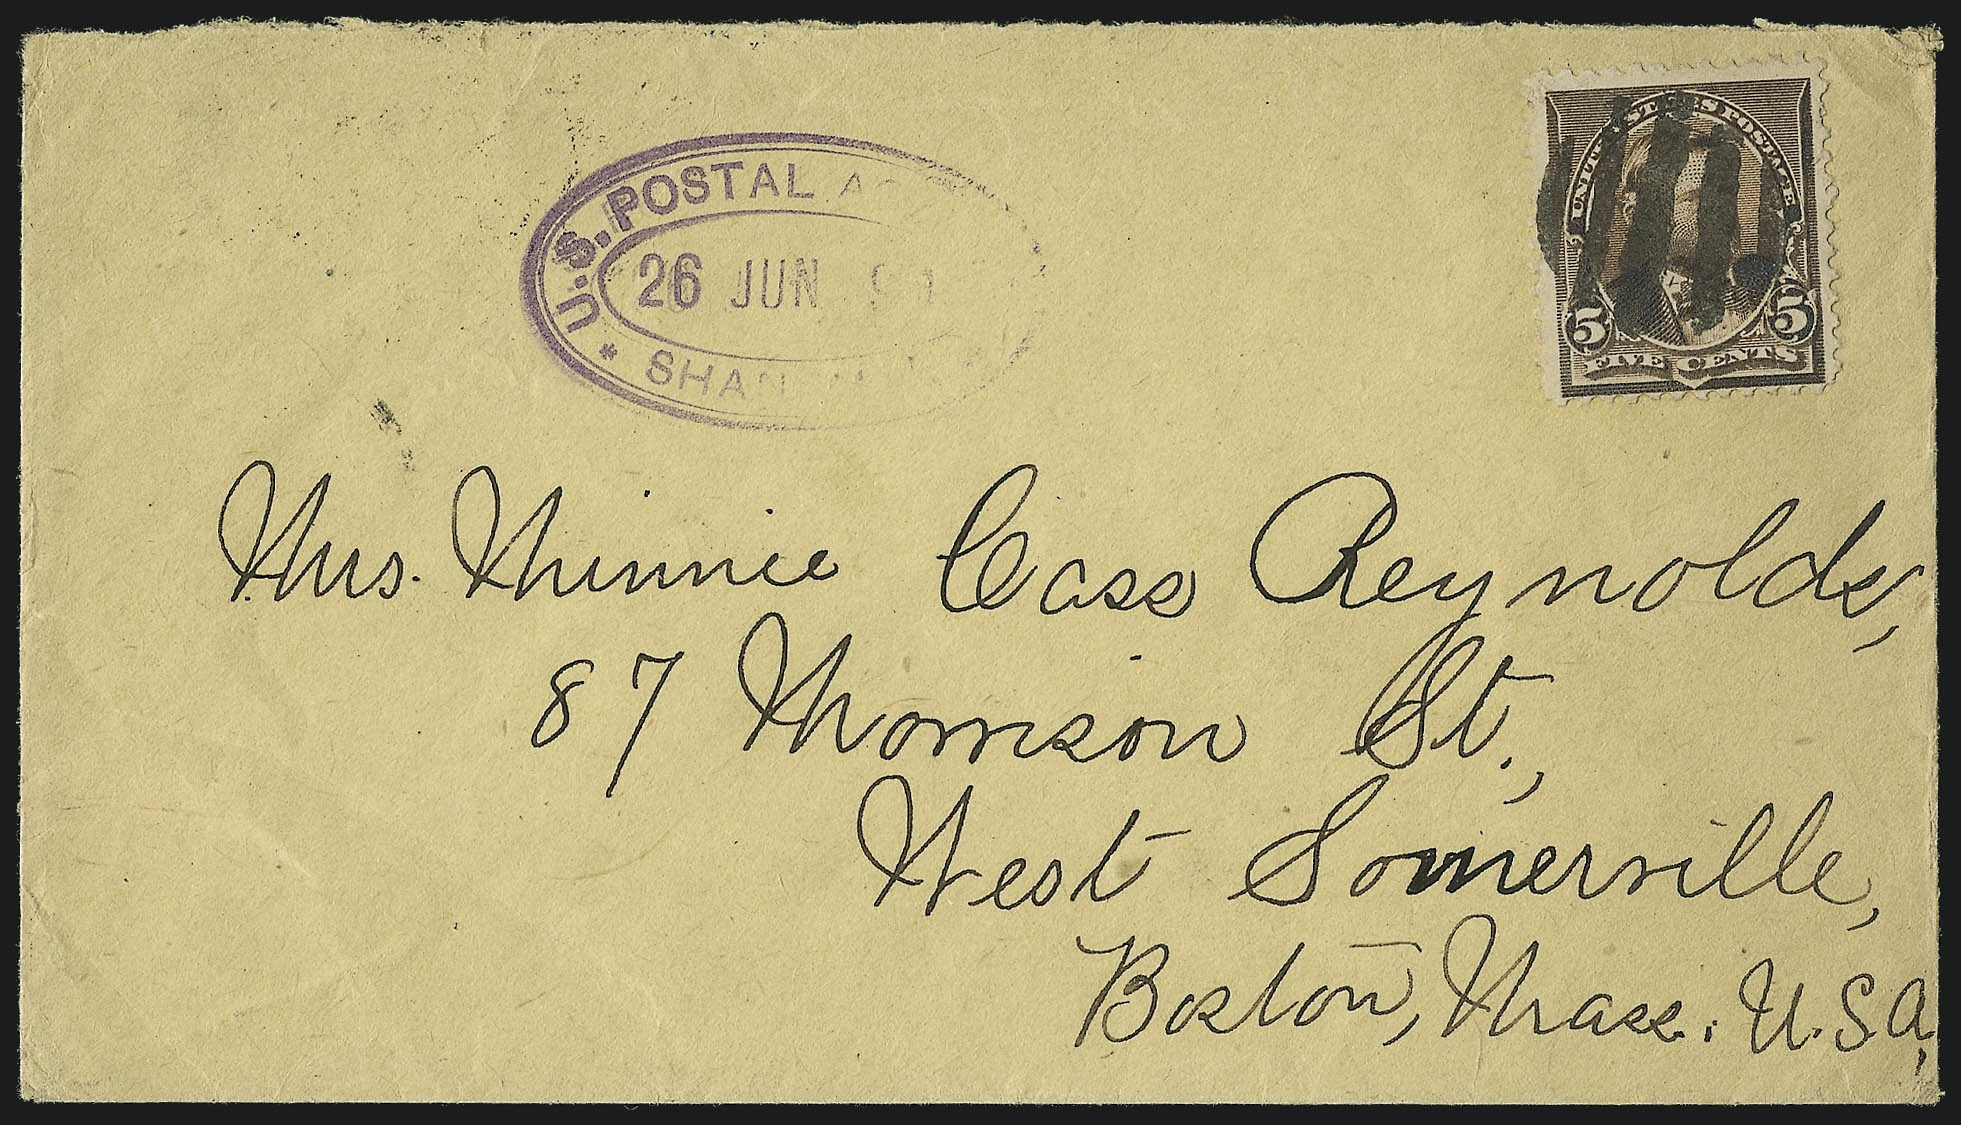 U.S. POSTAL
26 JUN
UNITED STATES POSTAGE
5 5
FIVE CENTS
Mrs. Minnie Cass Reynolds,
87 Morrison St.,
West Somerville,
Boston, Mass. U.S.A,